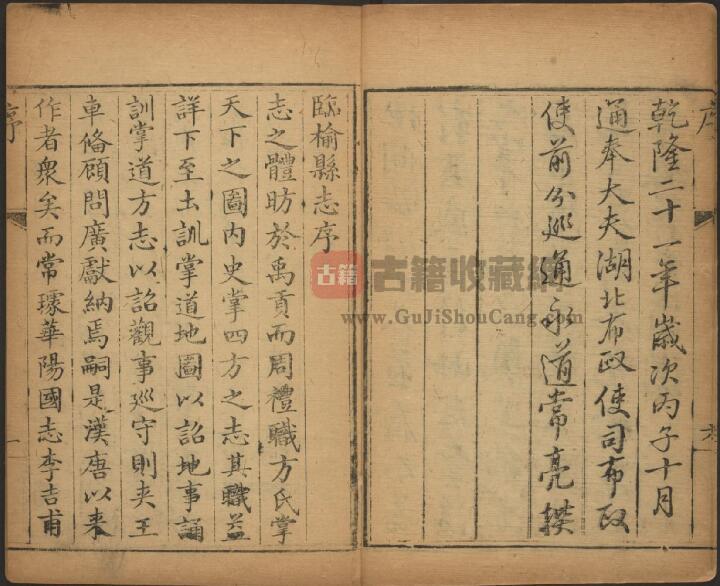 乾隆二十一年歲次丙子十月
通奉大夫湖北布政使司布政
使前分巡通永道常亮撰
序
臨榆縣志序
志之體昉於禹貢而周禮職方氏掌
天下之圖內史掌四方之志其職益
詳下至土訓掌道地圖以詔地事誦
訓掌道方志以詔觀事巡守則夾王
車俻顧問廣獻納焉嗣是漢唐以來
作者衆矣而常璩華陽國志李吉甫
序
一
古籍
古籍收藏網
www.GuJiShouCang.com